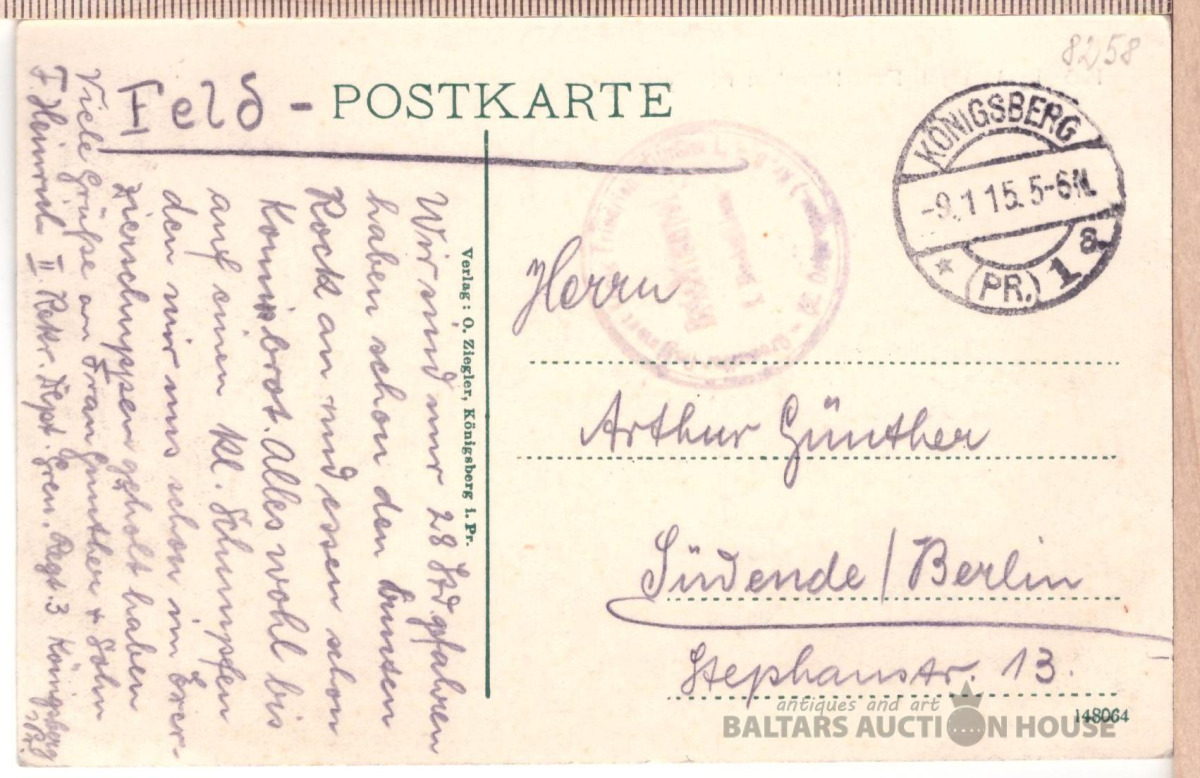 82/58
Feld - POSTKARTE
KÖNIGSBERG
-9.1 15. 5-6 N.
* (PR.) 1 a.
Wir sind nur 28 Std. gefahren
haben schon den bunten
Rock an und essen schon
Kommisbrot. Alles wohl bis
auf einen kl. Schnupfen
den wir uns schon im Exer-
zierschuppen geholt haben
Viele Grüße an Frau Günther + Sohn
F. Heinrich II Rekr. Dept. Gren. Regt. 3 Königsberg
i/Pr.
Verlag: O. Ziegler, Königsberg i. Pr.
Herrn
Arthur Günther
Südende / Berlin
Stephanstr. 13.
148064
antiques and art
BALTARS AUCTION HOUSE